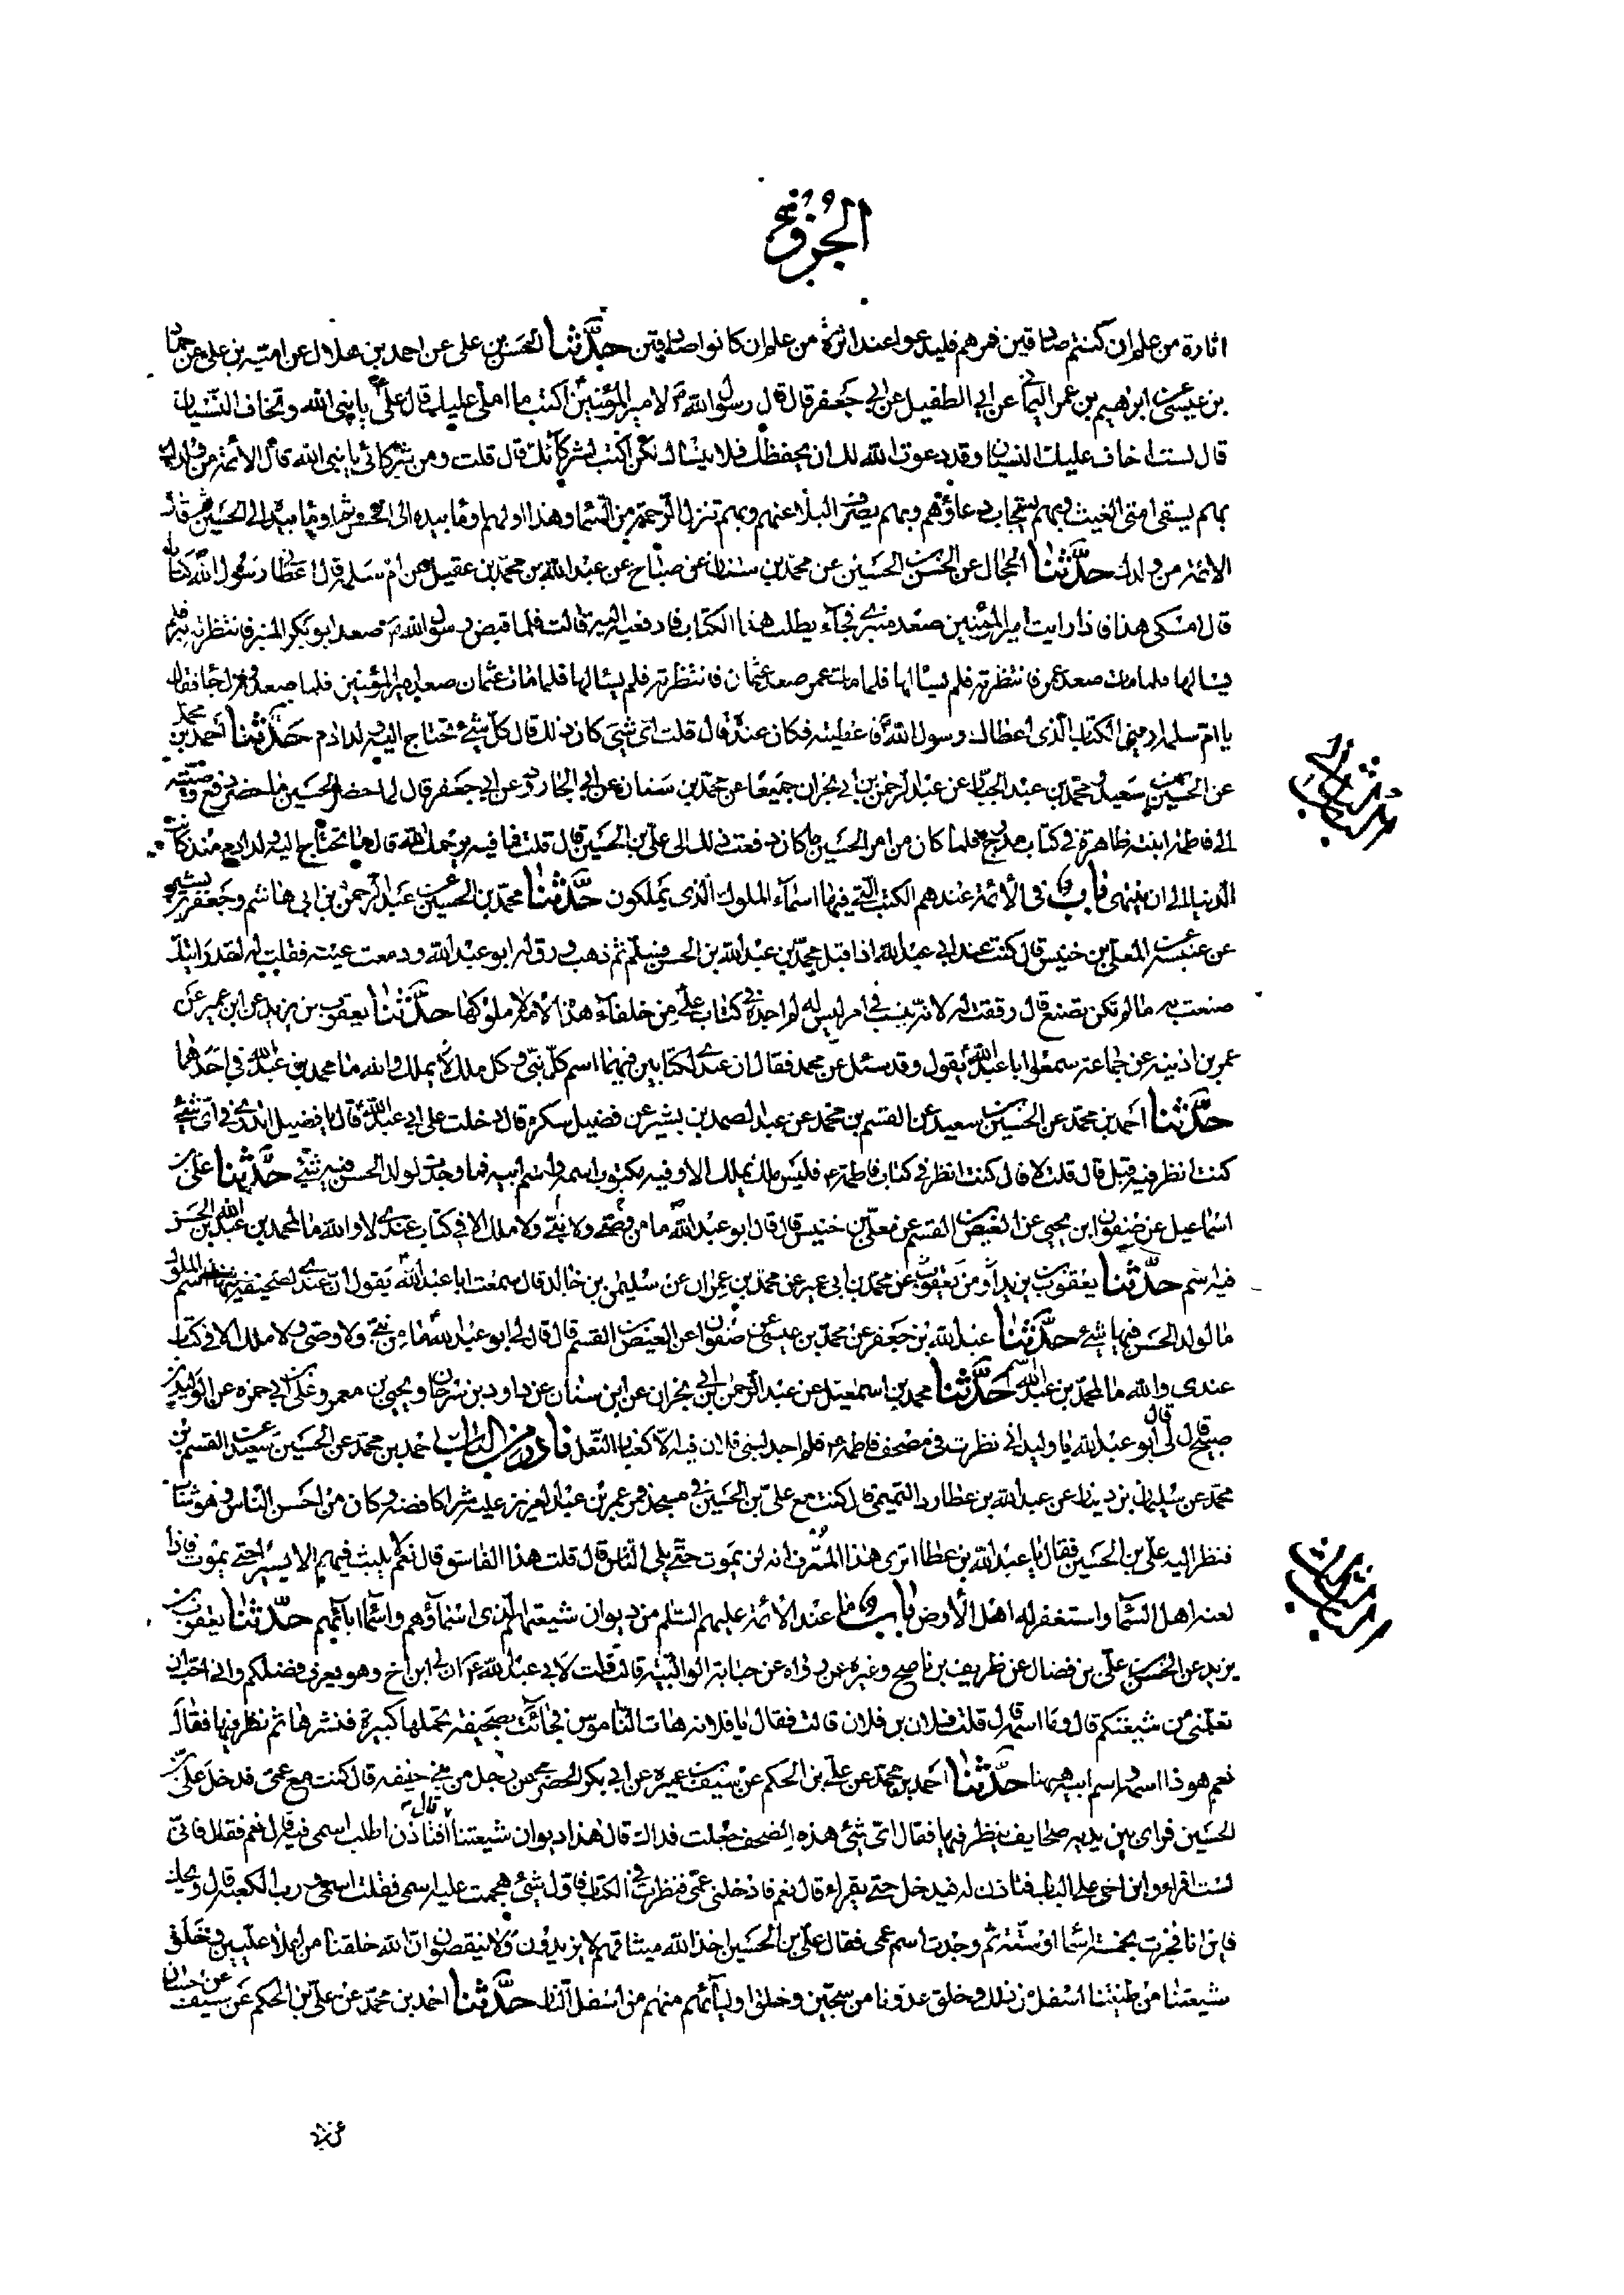 الجزو
اثارة من علم ان كنتم صادقين فمرهم فليدعوا عند اثرة من علم ان كانوا صادقين حدّثنا الحسن بن على عن احمد بن هلال عن امية بن على عن حماد
بن عيسى عن ابرهيم بن عمر اليمانى عن ابى الطفيل عن ابى جعفر قال قال رسول الله لامير المؤمنين اكتب ما املى عليك قال على يا نبى الله وتخاف النسيان
قال لست اخاف عليك النسيان وقد دعوت الله لك ان يحفظك فلا ينساك لكن اكتب لشركائك قال قلت ومن شركائى يا نبى الله قال الائمة من ولدك
بهم يسقى امتى الغيث وبهم يستجاب دعاؤهم وبهم يصرف البلاء عنهم وبهم تنزل الرحمة من السماء وهذا اولهم واومأ بيده الى الحسن ثم اومأ بيده الى الحسين ثم قال
الائمة من ولدك حدّثنا الحجال عن الحسن بن الحسين عن محمد بن سنان عن صباح عن عبد الله بن محمد بن عقيل عن ام سلمة قال اعطانى رسول الله كتابا
قال امسكى هذا فاذا رايت امير المؤمنين صعد منبرى فجاء يطلب هذا الكتاب فادفعيه اليه قالت فلما قبض رسول الله صعد ابو بكر المنبر فانتظرته فلم
يسالها فلما مات صعد عمر فانتظرته فلم يسالها فلما مات عمر صعد عثمان فانتظرته فلم يسالها فلما مات عثمان صعد امير المؤمنين فلما صعد ونزل جاء فقال
يا ام سلمة ارينى الكتاب الذى اعطاك رسول الله فاعطيته فكان عنده قال قلت اى شىء كان ذلك قال كل شىء تحتاج اليه ولد ادم حدّثنا احمد بن محمد
عن الحسين بن سعيد ومحمد بن عبد الجبار عن عبد الرحمن بن ابى نجران جميعا عن محمد بن سنان عن ابى الجارود عن ابى جعفر قال لما حضر الحسين ما حضر دفع وصيته
الى فاطمة ابنته ظاهرة فى كتاب مدرج فلما كان من امر الحسين ما كان دفعت ذلك الى على بن الحسين قال قلت فما فيه يرحمك الله قال ما يحتاج اليه ولد ادم منذ كانت
الدنيا الى ان تفنى باب فى الأئمة عندهم الكتب التى فيها اسماء الملوك الذى يملكون حدّثنا محمد بن الحسين عن عبد الرحمن بن ابى هاشم وجعفر بن بشير
عن عنبسة عن المعلى بن خنيس قال كنت عند ابى عبد الله اذ اقبل محمد بن عبد الله بن الحسن فسلم ثم ذهب ورق له ابو عبد الله ودمعت عينه فقلت له لقد رايتك
صنعت به ما لم تكن تصنع قال رققت له لانه ينسب فى امر ليس له لم اجده فى كتاب على من خلفاء هذه الامة ولا ملوكها حدّثنا يعقوب بن يزيد عن ابن عمير عن
عمر بن اذينه عن جماعة سمعوا ابا عبد الله يقول وقد سئل عن محمد فقال ان عندى لكتابين فيهما اسم كل نبى وكل ملك يملك والله ما محمد بن عبد الله فى احدهما
حدّثنا احمد بن محمد عن الحسين بن سعيد عن القسم بن محمد عن عبد الصمد بن بشير عن فضيل سكرة قال دخلت على ابى عبد الله قال يا فضيل اتدرى فى اى شىء
كنت انظر فيه قبل قال قلت لا قال كنت انظر فى كتاب فاطمة فليس ملك يملك الا وفيه مكتوب اسمه واسم ابيه فما وجدت لولد الحسن فيه شىء حدّثنا على بن
اسماعيل عن صفوان ابن يحيى عن العيص بن القسم عن معلى بن خنيس قال قال ابو عبد الله ما من وصى ولا نبى ولا ملك الا فى كتاب عندى لا والله ما لمحمد بن عبد الله بن الحسن
فيه اسم حدّثنا يعقوب بن يزيد او من يعقوب عن محمد بن ابى عمير عن محمد بن عمران عن سليمن بن خالد قال سمعت ابا عبد الله يقول ان عندى لصحيفة فيها اسم الملوك
ما لولد الحسن فيها شىء حدّثنا عبد الله بن جعفر عن محمد بن عيسى عن صفوان عن العيص بن القسم قال قال لى ابو عبد الله ما من نبى ولا وصى ولا ملك الا فى كتاب
عندى والله ما لمحمد بن عبد الله اسم حدّثنا محمد بن اسمعيل عن عبد الرحمن بن ابى نجران عن ابن سنان عن داود بن سرحان ويحيى بن معمر وعلى بن ابى حمزه عن الوليد بن
صبيح قال قال لى ابو عبد الله يا وليد انى نظرت فى مصحف فاطمة فلم اجد لبنى فلان فيه الا كغبار النعل نادر من الباب احمد بن محمد عن الحسين بن سعيد عن القسم بن
محمد عن سليمان بن دينار عن عبد الله بن عطاء التميمى قال كنت مع على بن الحسين فى مسجد فمر عمر بن عبد العزيز عليه شراكا فضه وكان من احسن الناس وهو شاب
فنظر اليه على بن الحسين فقال يا عبد الله بن عطا اترى هذا المترف انه لن يموت حتى يلى الناس قال قلت هذا الفاسق قال نعم لا يلبث فيهم الا يسيرا حتى يموت فاذا
لعنه اهل السماء واستغفر له اهل الأرض باب ما عند الأئمة عليهم السلم من ديوان شيعتهم الذى اسماؤهم واسماء ابائهم حدّثنا يعقوب بن
يزيد عن الحسن بن على بن فضال عن ظريف بن ناصح وغيره عمن رواه عن حبابة الوالبية قالت قلت لابى عبد الله ان لى ابن اخ وهو يعرف فضلكم وانى احب ان
تعلمنى من شيعتكم قال وما اسمه قال قلت فلان بن فلان قالت فقال يا فلانه هات الناموس فجائت بصحيفة تحملها كبيرة فنشرها ثم نظر فيها فقال
نعم هوذا اسمه واسم ابيه ههنا حدّثنا احمد بن محمد عن على بن الحكم عن سيف بن عميره عن ابى بكر الحضرمى عن رجل من بنى حنيفه قال كنت مع عمى فدخل على بن
الحسين فراى بين يديه صحايف ينظر فيها فقال اى شىء هذه الصحف جعلت فداك قال هذا ديوان شيعتنا قال افتاذن اطلب اسمى فيه قال نعم فقال فانى
لست اقراء وابن اخى على الباب فتاذن له فيدخل حتى يقراء قال نعم فادخلنى عمى فنظرت فى الكتاب فاول شىء هجمت عليه اسمى فقلت اسمى ورب الكعبة قال ويحك
فاين انا فجزت بخمسة اسماء او ستة ثم وجدت اسم عمى فقال على بن الحسين اخذ الله ميثاقهم لا يزيدون ولا ينقصون ان الله خلقنا من اعلا عليين وخلق
شيعتنا من طينتنا اسفل من ذلك وخلق عدونا من سجين وخلق اوليائهم منهم من اسفل النار حدّثنا احمد بن محمد عن على بن الحكم عن سيف عن حسان